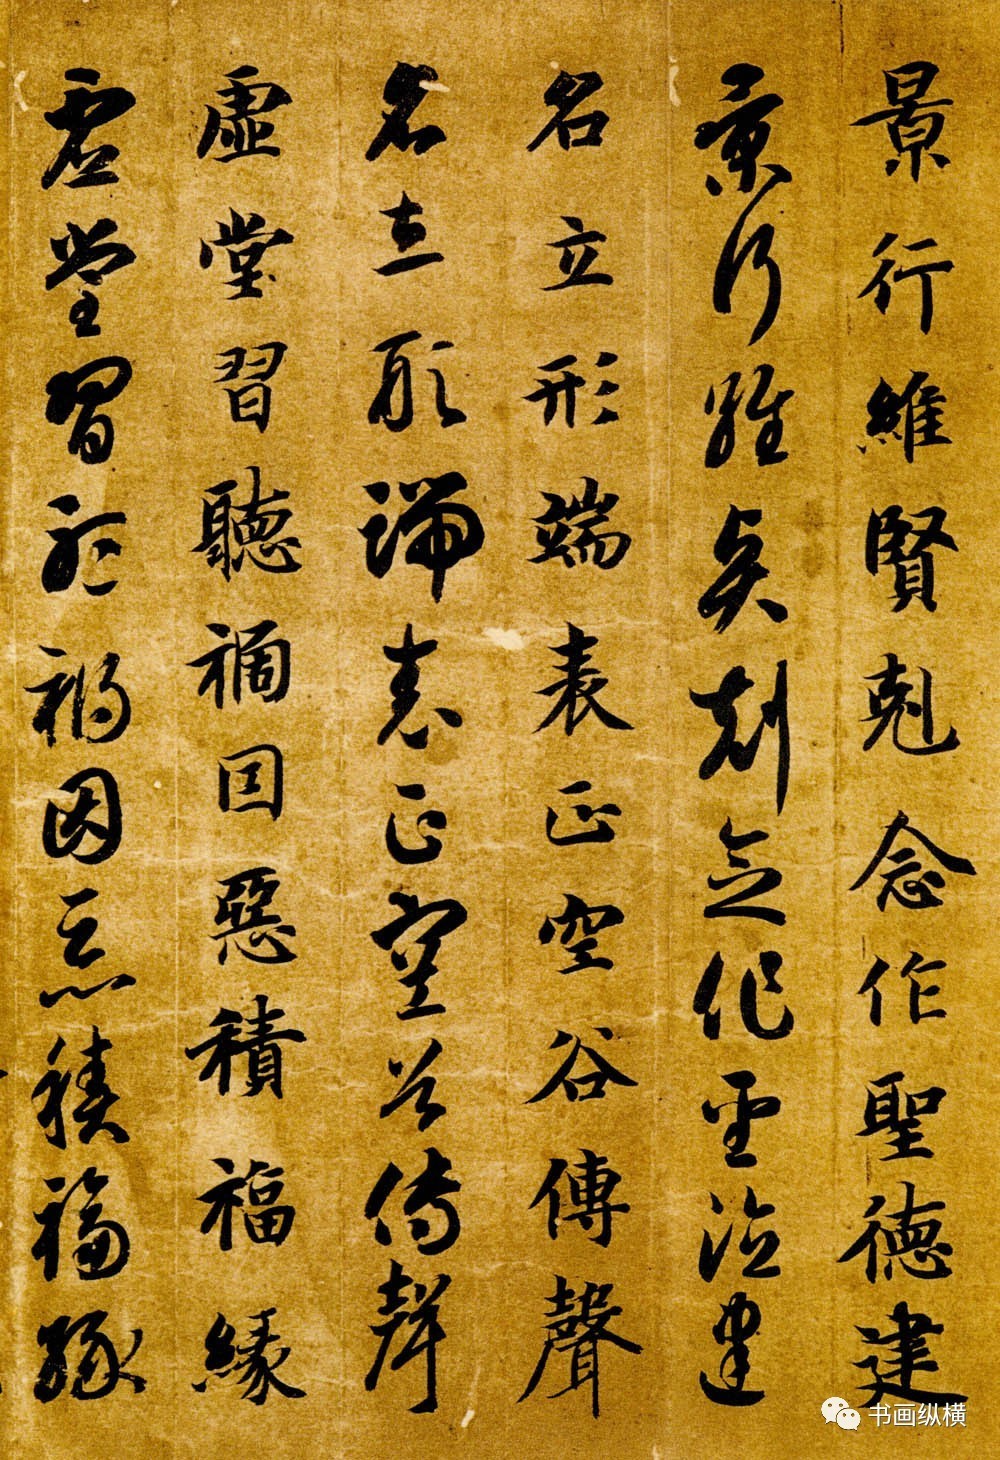 景行維賢剋念作聖德建
景行維賢剋念作聖德建
名立形端表正空谷傳聲
名立形端表正空谷傳聲
虛堂習聽禍因惡積福緣
虛堂習聽禍因惡積福緣
书画纵横